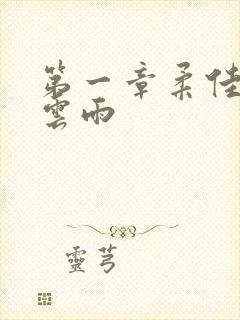 第一章柔佳
雲雨
靈芎